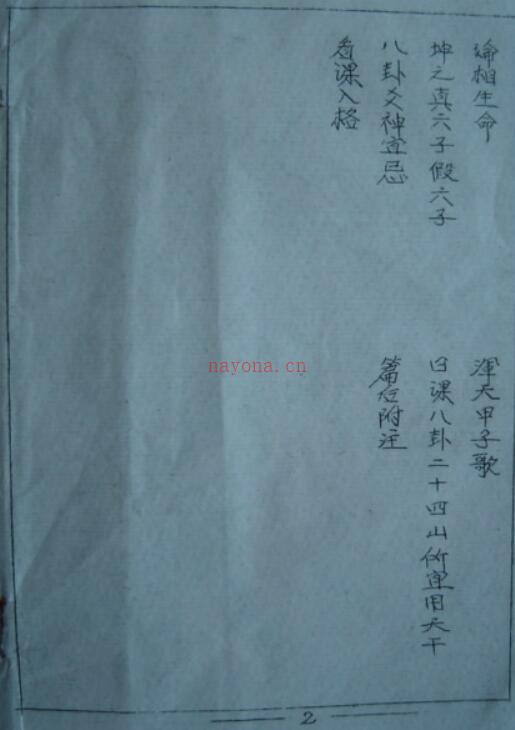 论相生命
渾天甲子歌
坤之真六子假六子
日课八卦二十四山所宜用天干
八卦爻神宜忌
篇后附注
看课入格
nayona.cn
2